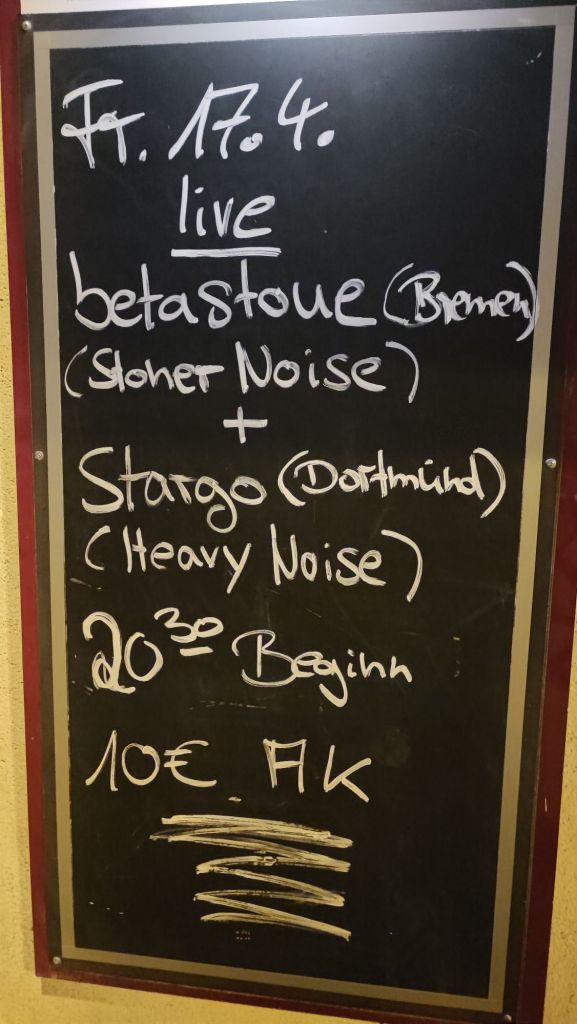 Fr. 17.4.
live
betastoue (Bremen)
(Stoner Noise)
+
Stargo (Dortmund)
(Heavy Noise)
20³⁰ Beginn
10€ AK